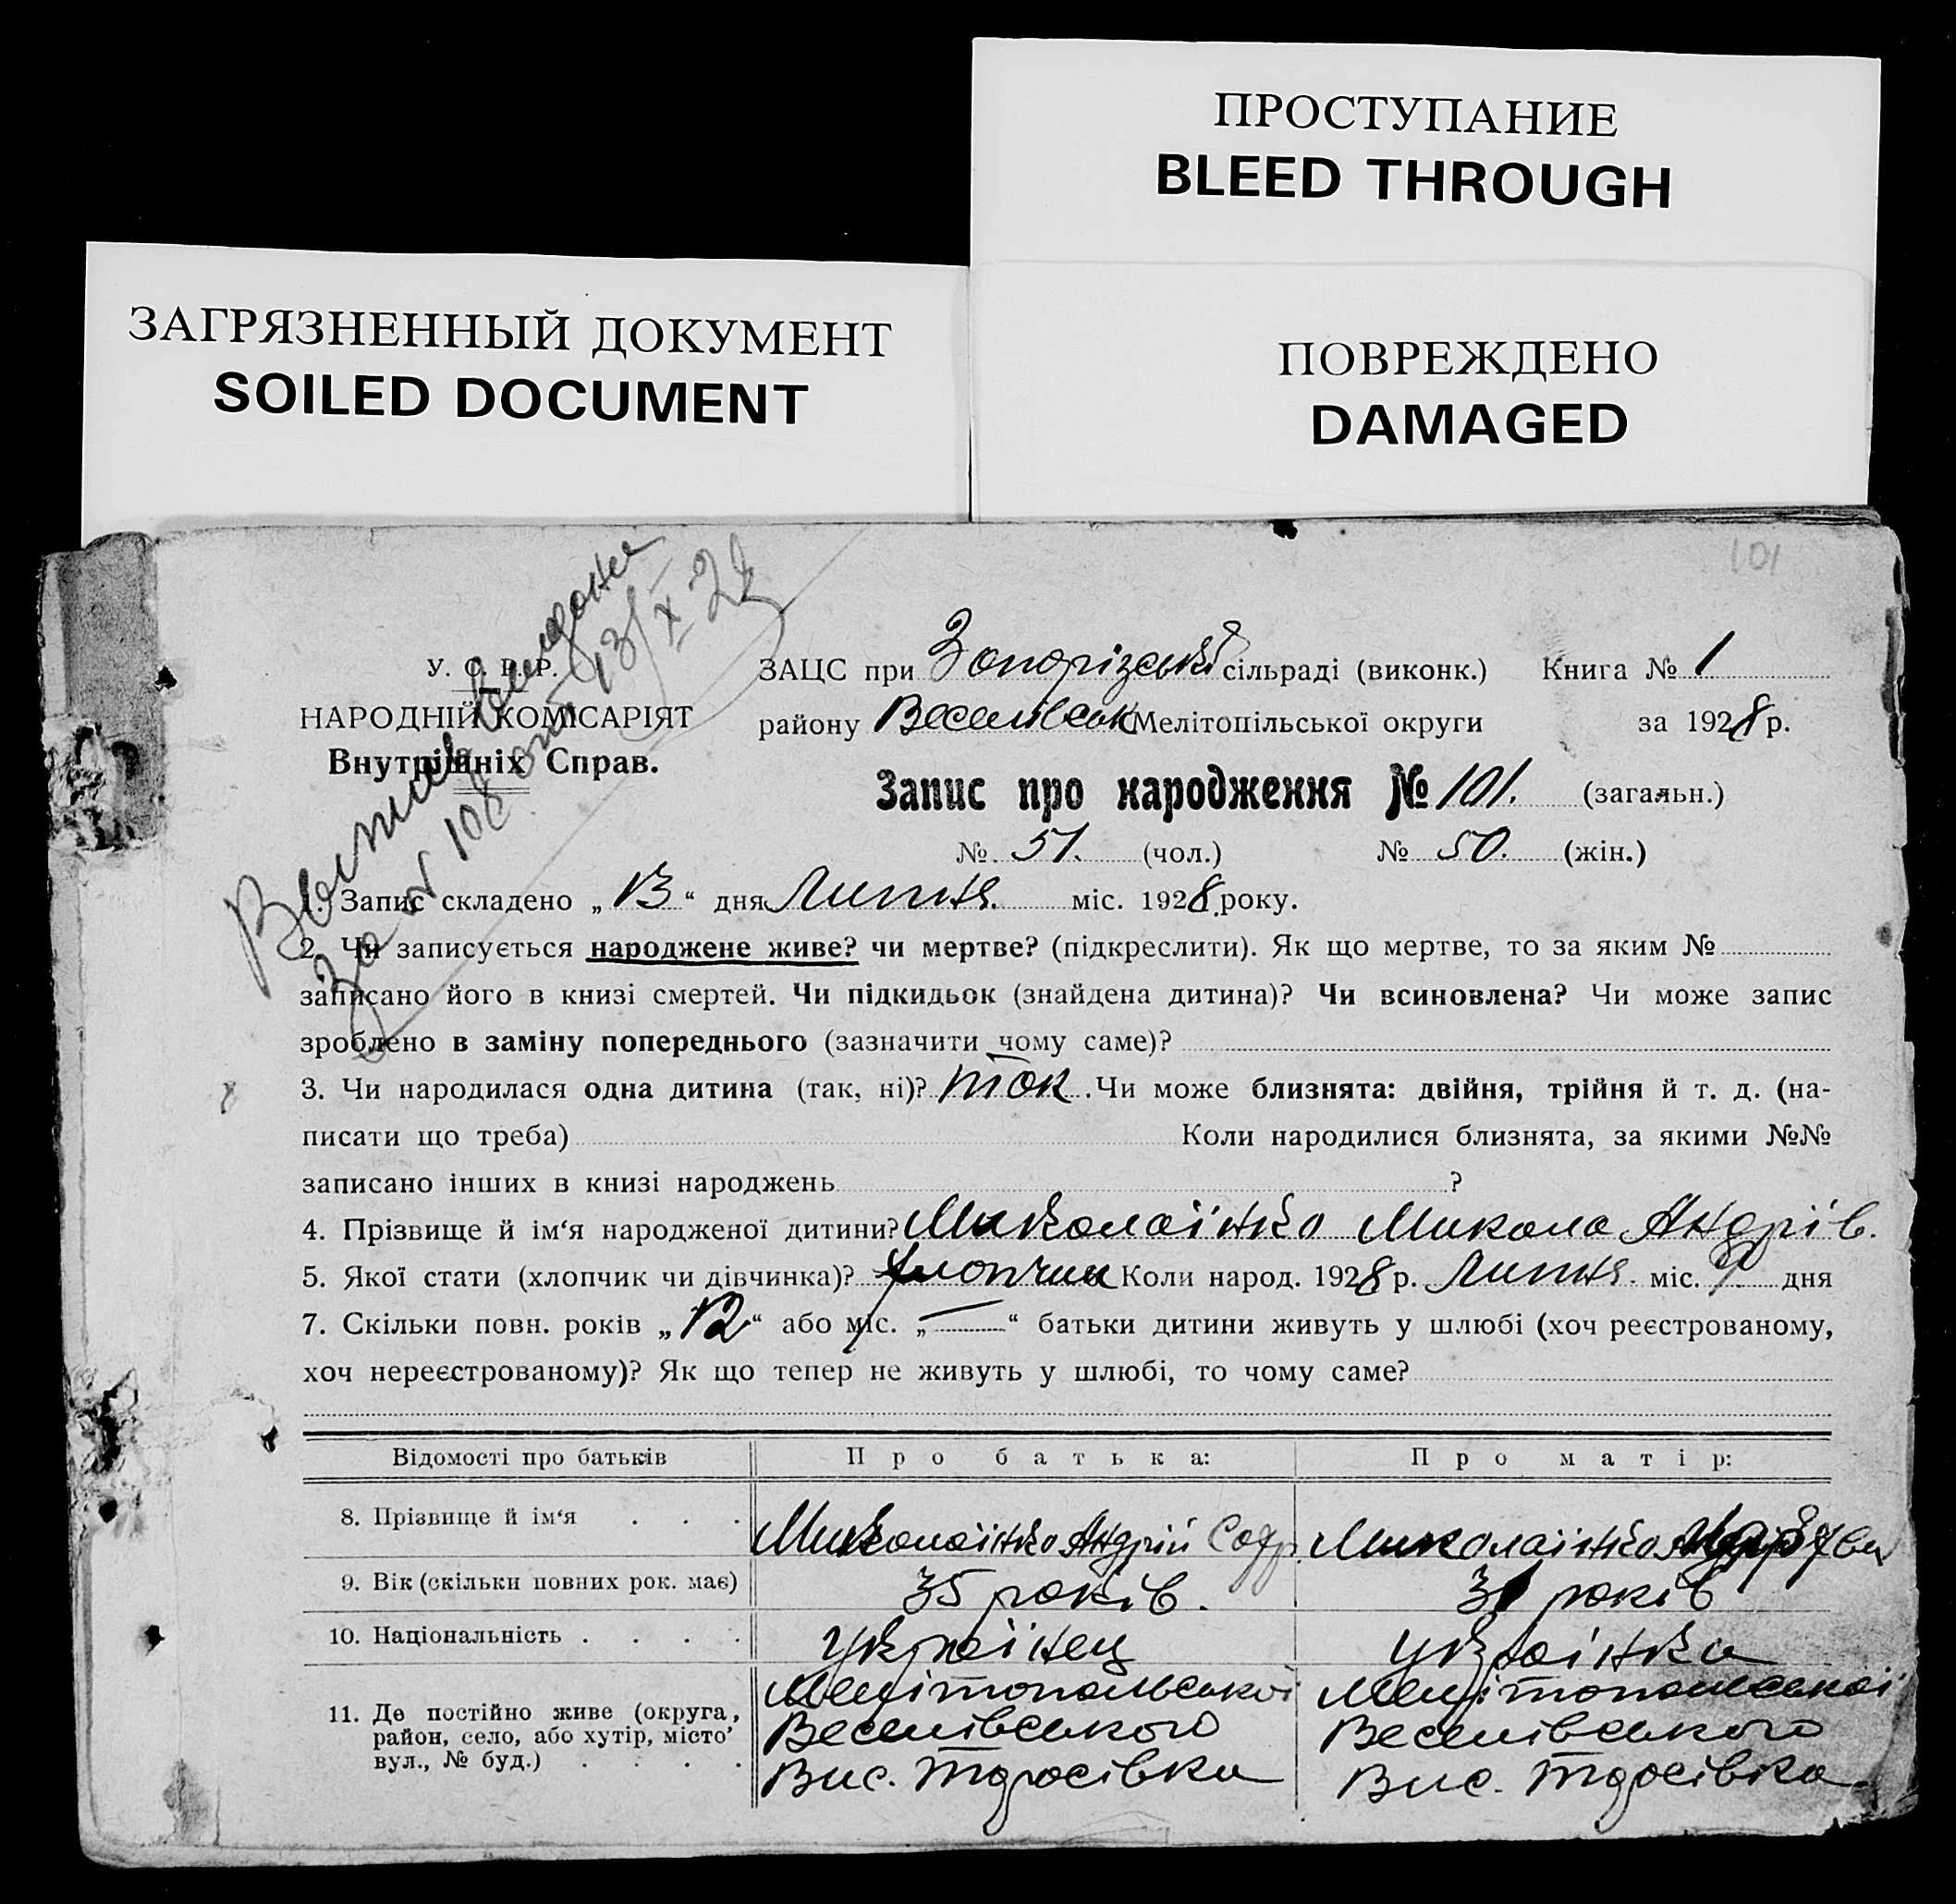 ПРОСТУПАНИЕ
BLEED THROUGH
ЗАГРЯЗНЕННЫЙ ДОКУМЕНТ
SOILED DOCUMENT
ПОВРЕЖДЕНО
DAMAGED
101
У. С. Р. Р.
НАРОДНІЙ КОМІСАРІЯТ
Внутрішніх Справ.
Выпись выдана
за № 108 от 13/X 28
ЗАЦС при Запорізській сільраді (виконк.) Книга № 1
району Веселівськ Мелітопільської округи за 1928 р.
Запис про народження № 101. (загальн.)
№. 51. (чол.) № 50. (жін.)
1. Запис складено „13“ дня Липня. міс. 1928 року.
2. Чи записується народжене живе? чи мертве? (підкреслити). Як що мертве, то за яким №
записано його в книзі смертей. Чи підкидьок (знайдена дитина)? Чи всиновлена? Чи може запис
зроблено в заміну попереднього (зазначити чому саме)?
3. Чи народилася одна дитина (так, ні)? так. Чи може близнята: двійня, трійня й т. д. (на-
писати що треба) Коли народилися близнята, за якими №№
записано інших в книзі народжень ?
4. Прізвище й ім‘я народженої дитини? Миколаінко Микола Андрів.
5. Якої стати (хлопчик чи дівчинка)? хлопчик Коли народ. 1928 р. Липня. міс. 9. дня
7. Скільки повн. років „12“ або міс. „—“ батьки дитини живуть у шлюбі (хоч реєстрованому,
хоч нереєстрованому)? Як що тепер не живуть у шлюбі, то чому саме?
Відомості про батьків Про батька: Про матір:
8. Прізвище й ім‘я . . . Миколаінко Андрій Софр. Миколаінко
9. Вік (скільки повних рок. має) 35 років. 31 років
10. Національність . . . . Украінец Украінка
11. Де постійно живе (округа, район, село, або хутір, місто’ вул., № буд.) . . . .
Мелітопольськоі Мелітопольськоі
Веселівського Веселівського
Вис. Тдосівка Вис. Тдосівка